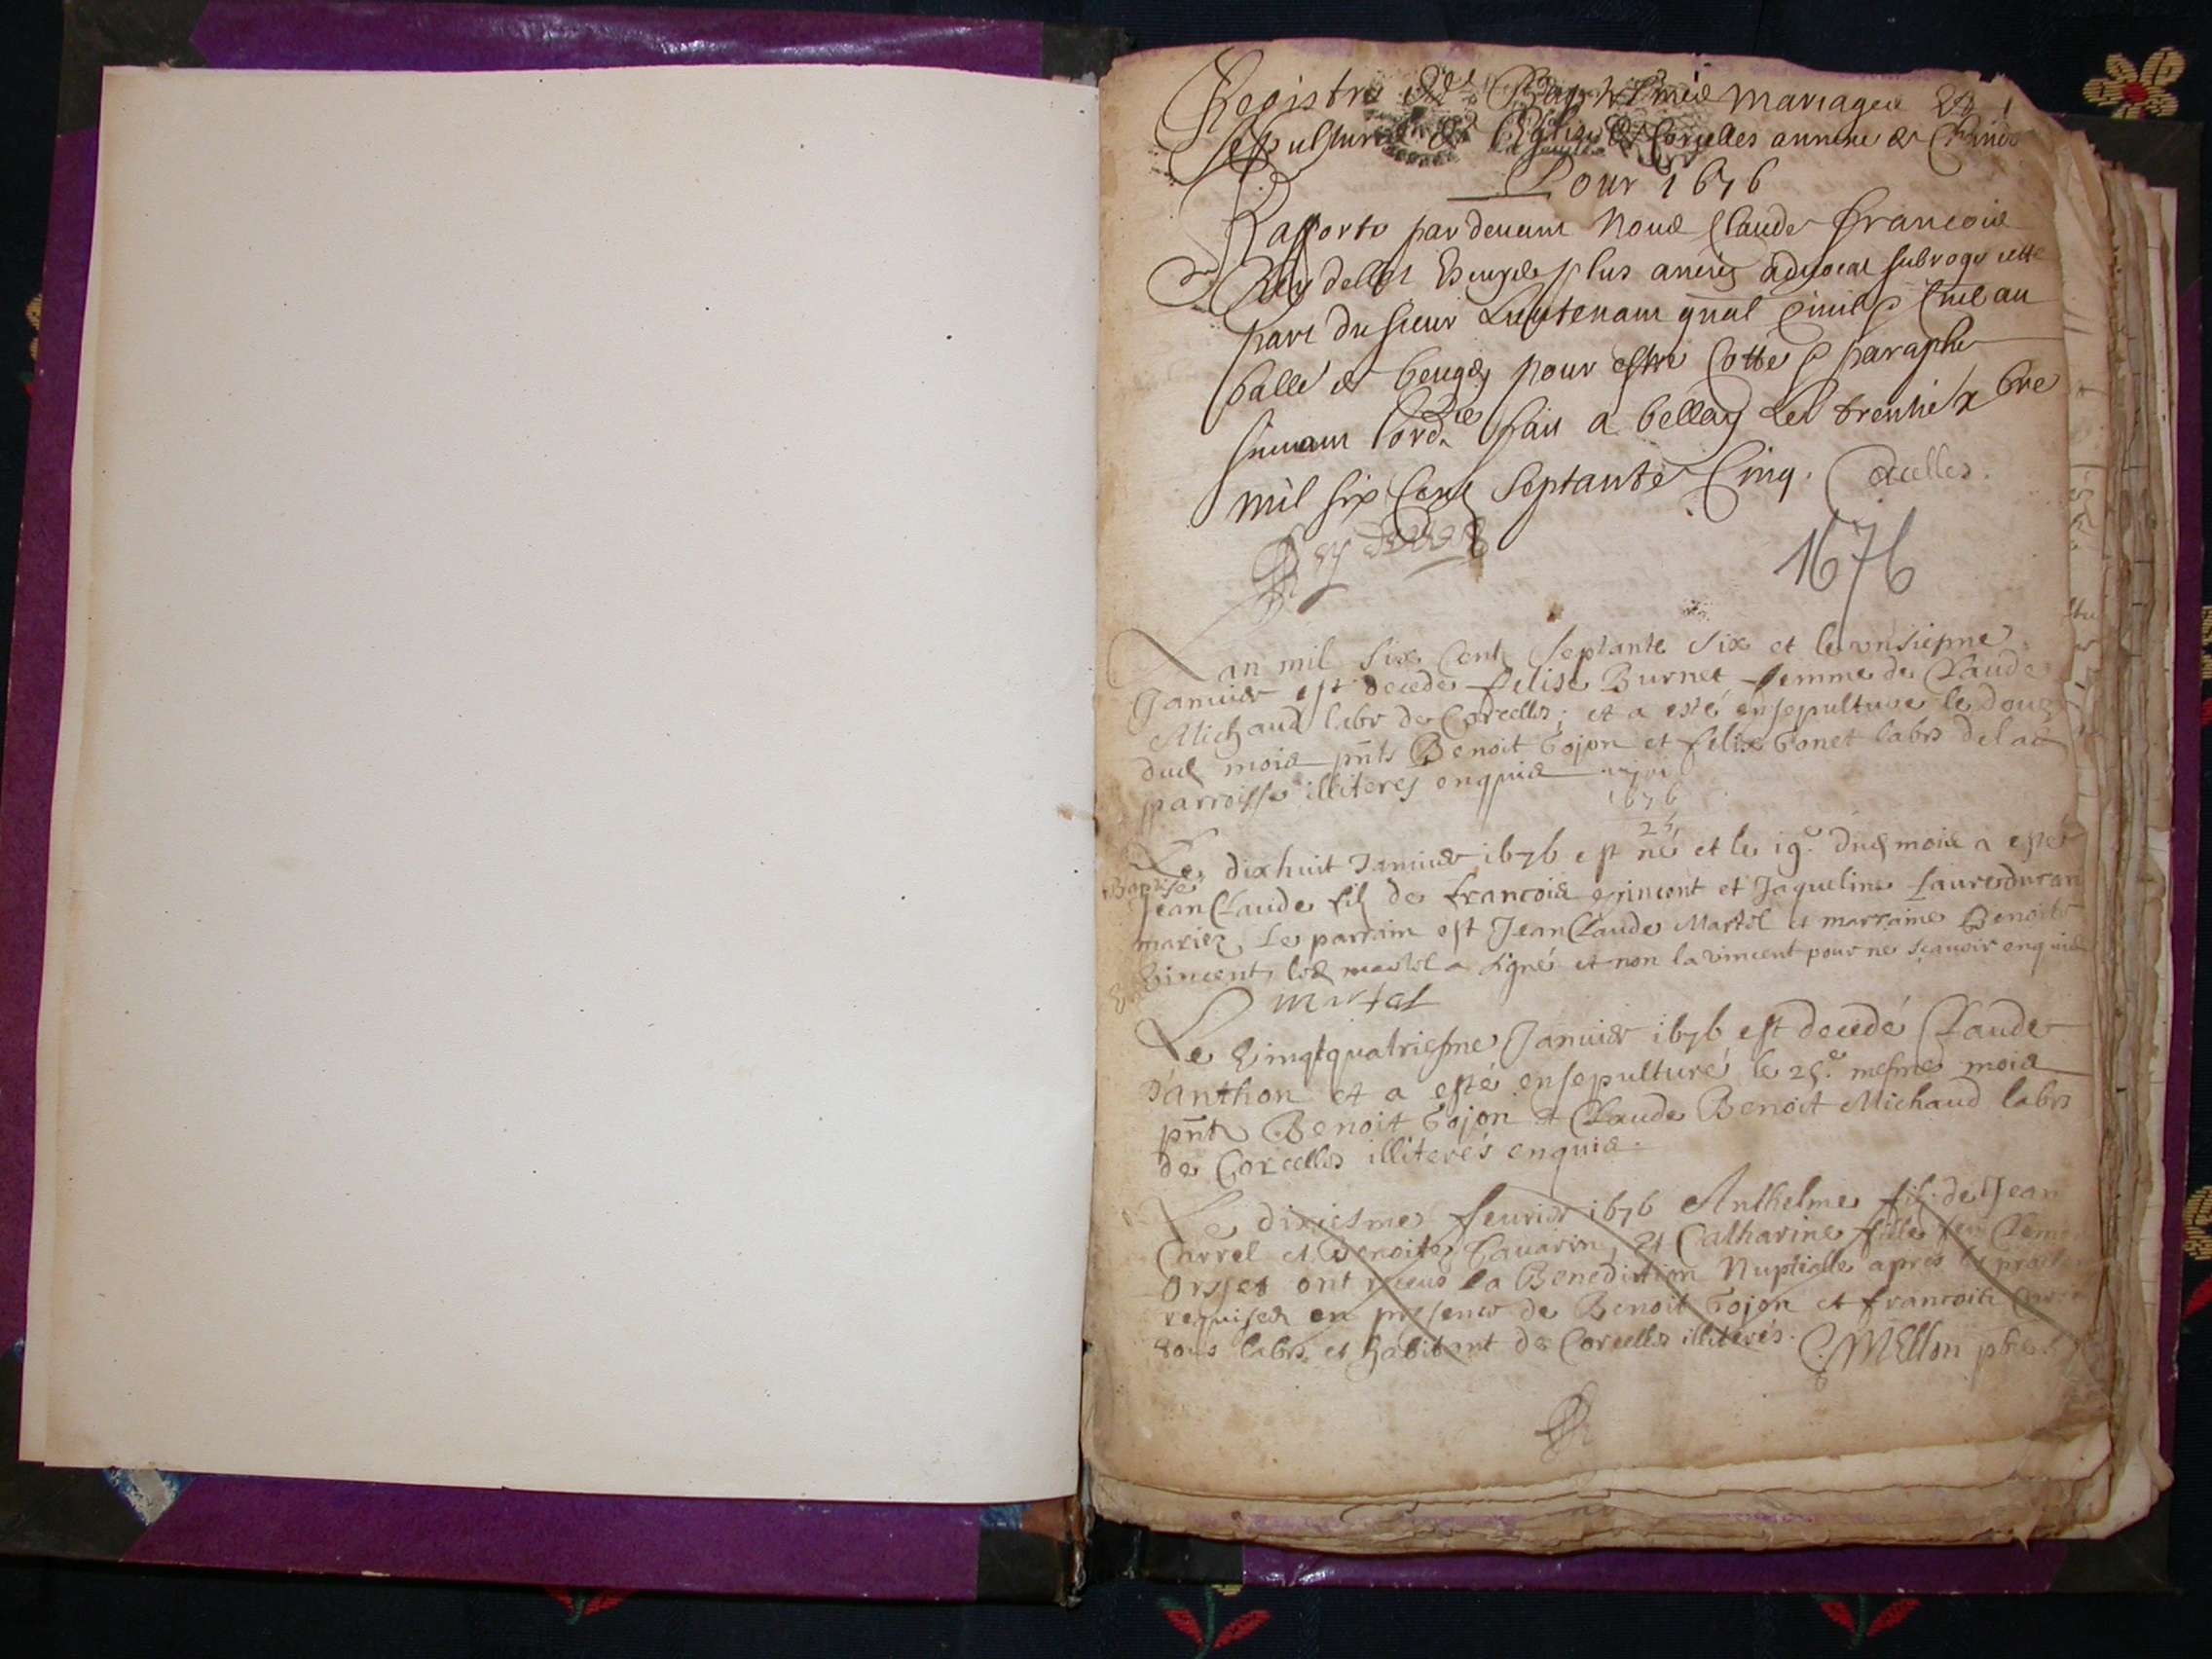 Registre des Baptesmes mariages Et
sepultures de l'Eglise de Corcelles annexe de
Pour 1676
Rapporté pardevant Nous Claude francois
Reydellet plus ancien advocat subrogé cette
part du sieur Lieutenant gnal Civil & Cruel au
balle de beugey pour estre Cotté & paraphe
suivant lord.ce fait a bellay Le trente xbre
mil six Cent Septante Cinq. Corcelles.
Reydellet
1676
Lan mil six Cent septante Six et le unsiesme
Januier est decede felise Burnet femme de Claude
Michaud labr de Corcelles; et a esté ensepulture le douz
dud mois pnts Benoit Gojon et felix Gonet labrs de lad
parroisse illiteres enquis
1676
25
Le dixhuit Januier 1676 est né et le 19.e dud mois a esté
Baptisé
Jean Claude fils de francois vincent et Jaqueline
mariez, Le parrain est Jean Claude Martel et marraine Benoite
Vincent, led martel a signé et non la vincent pour ne sçavoir enquis
martel
Le Vingtquatriesme Januier 1676 est decedé Claude
Danthon et a esté ensepulturé le 25.e mesme mois
pnts Benoit Gojon et Claude Benoit Michaud labrs
de Corcelles illiterés enquis.
Le dixiesme feurier 1676 Anthelme fils de Jean
Carrel et Benoite Sauarin, Et Catharine fille feu
Orsset ont receus la Benediction Nuptialle apres les
requises en presence de Benoit Gojon et francois
tous labrs et habitant de Corcelles illiterés. Mellon pbre